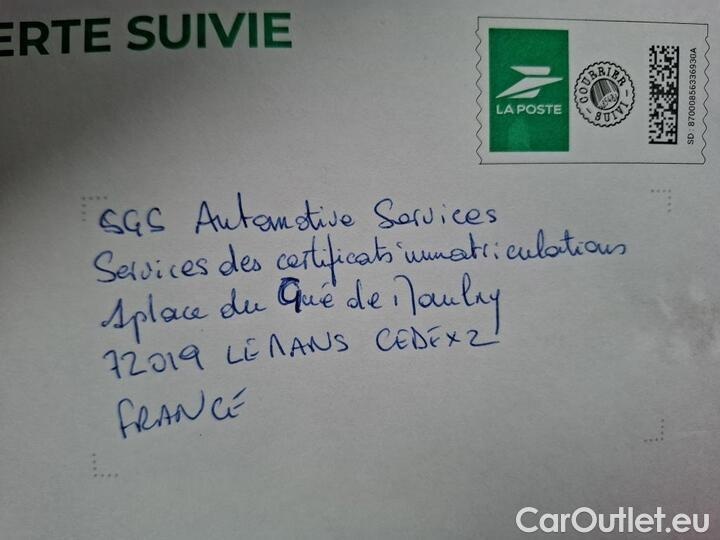 ERTE SUIVIE
LA POSTE
COURRIER SUIVI
SD : 87000856336930A
SGS Automotive Services
Services des certificats immatriculations
1 place du Gué de Maulny
72019 LE MANS CEDEX 2
FRANCE
CarOutlet.eu